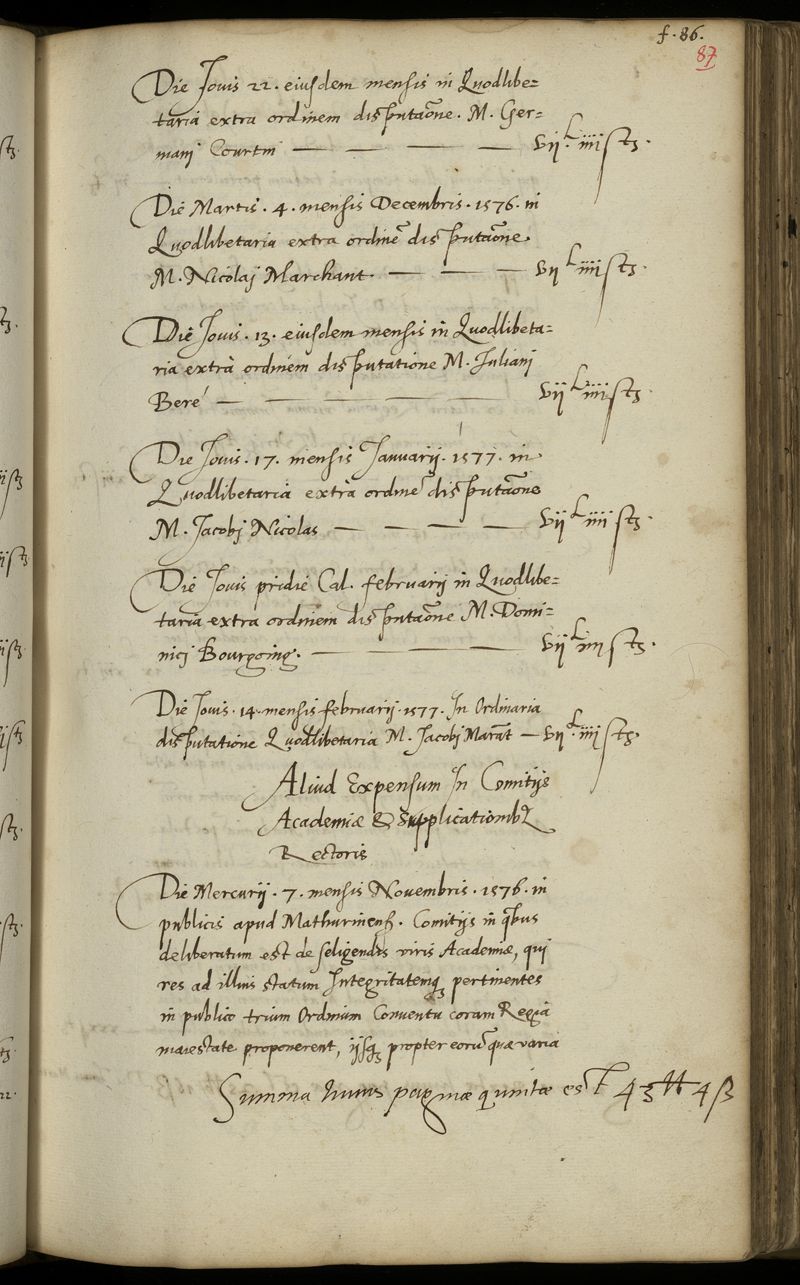 f. 86.
87
Die Jovis 22. eiusdem mensis in Quodlibe=
taria extra ordinem disputaõne. M. Ger=
mani Courtin — — — — vii. L iiii st.
Die Martis. 4. mensis Decembris. 1576. in
Quodlibetaria extra ordinẽ disputaõne.
M. Nicolai Marchant. — — — vii L iiii st.
Die Jovis. 13. eiusdem mensis in Quodlibeta=
ria extrà ordinem disputatione M. Juliani
Beré — — — — — vii L iiii st.
Die Jovis. 17. mensis Januarij. 1577. in
Quodlibetaria extrà ordinẽ disputaõne
M. Jacobi Nicolas — — — — vii L iiii st.
Die Jovis pridie Cal. februarij in Quodlibe=
taria extra ordinem disputaõne M. Domi=
nici Bourgoing. — — — vii L iiii st.
Die Jovis. 14. mensis februarij. 1577. In Ordinaria
disputatione Quodlibetaria M. Jacobi Marãt — vii. L iiii st.
Aliud Expensum In Comitijs
Academiæ & Supplicationibꝫ
Rectoris
Die Mercurij. 7. mensis Novembris. 1576. in
publicis apud Mathurinens. Comitijs in qͥbus
deliberatum est de seligendis viris Academiæ, qui
res ad illius statum Integritatemqꝫ pertinentes
in publico trium Ordinum Conventu coram Regia
maiestate proponerent, ijsqꝫ propter eorũ quæ varia
Summa huius paginæ quinitæ est 43 ₶ 4 ß